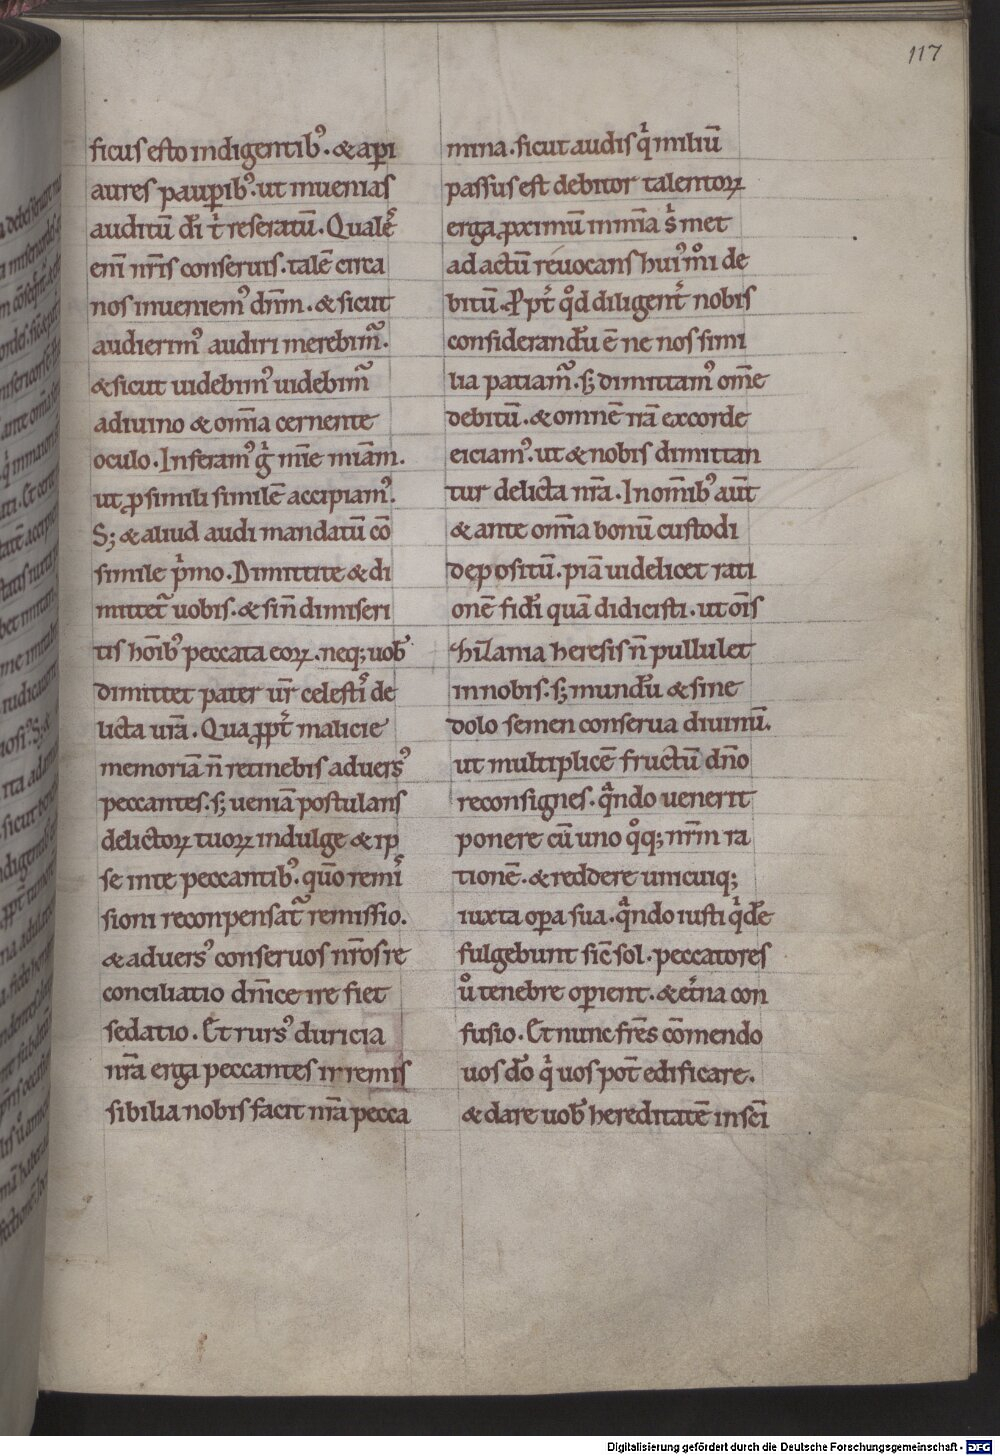 117
ficus esto indigentib᾽. & aꝑi
aures pauꝑib᾽. ut inuenias
auditū dī t̉ reseratū. Qualē᾽
enī nr̄is conseruis. talē circa
nos inueniem᾽ dn̄m. & sicut
audierim᾽ audiri merebim̄᾽.
& sicut uidebim᾽ uidebim̄᾽
adiuino & om̄ia cernente
oculo. Inferam᾽ gͥ mīe miām.
ut ꝓ simili similē accipiam᾽.
S; & aliud audi mandatū cō
simile pͥmo. Dimittite & di
mittet᾽ uobis. & sin̄ dimiseri
tis hōib᾽ peccata eoꝝ. neq; uob᾽
dimittet pater ur̄ celestis de
licta ur̄a. Qua ꝓpt᾽ malicie
memoriā n̄ retinebis aduers᾽
peccantes. s; ueniā postulans
delictoꝝ tuoꝝ indulge & ip
se inte peccantib᾽. quō remis
sioni reconpensat᾽ remissio.
& aduers᾽ conseruos nr̄os re
conciliatio dn̄ice ire fiet
sedatio. Et rurs᾽ duricia
nr̄a erga peccantes irremis
sibilia nobis facit nr̄a pecca
mina. sicut audis qͥ miliū
passus est debitor talentoꝝ
erga ꝓximū inmīa s᾽ met
ad actū reuocans hui᾽mͦi de
bitū. Ꝓpt᾽ qͦd diligent᾽ nobis
considerandū ē ne nos simi
lia patiam̄᾽. s; dimittam᾽ om̄e
debitū. & omnē irā excorde
eiciam᾽. ut & nobis dimittan
tur delicta nr̄a. In om̄ib᾽ aūt
& ante om̄ia bonū custodi
depositū. piā uidelicet rati
onē fidī quā didicisti. ut ōis
zizania heresis n̄ pullulet
innobis. s; mundū & sine
dolo semen conserua diuinū.
ut multiplicē fructū dn̄o
reconsignes. qᷓndo uenerit
ponere cū uno qͦq; nr̄m ra
tionē. & reddere unicuiq;
iuxta oꝑa sua. qᷓndo iusti qͥdē
fulgebunt sic̄ sol. peccatores
uͦ tenebre oꝑient. & et᾽na con
fusio. Et nunc fr̄es cōmendo
uos dō qͥ uos pot̄ edificare.
& dare uob᾽ hereditatē in sc̄i
Digitalisierung gefördert durch die Deutsche Forschungsgemeinschaft - DFG